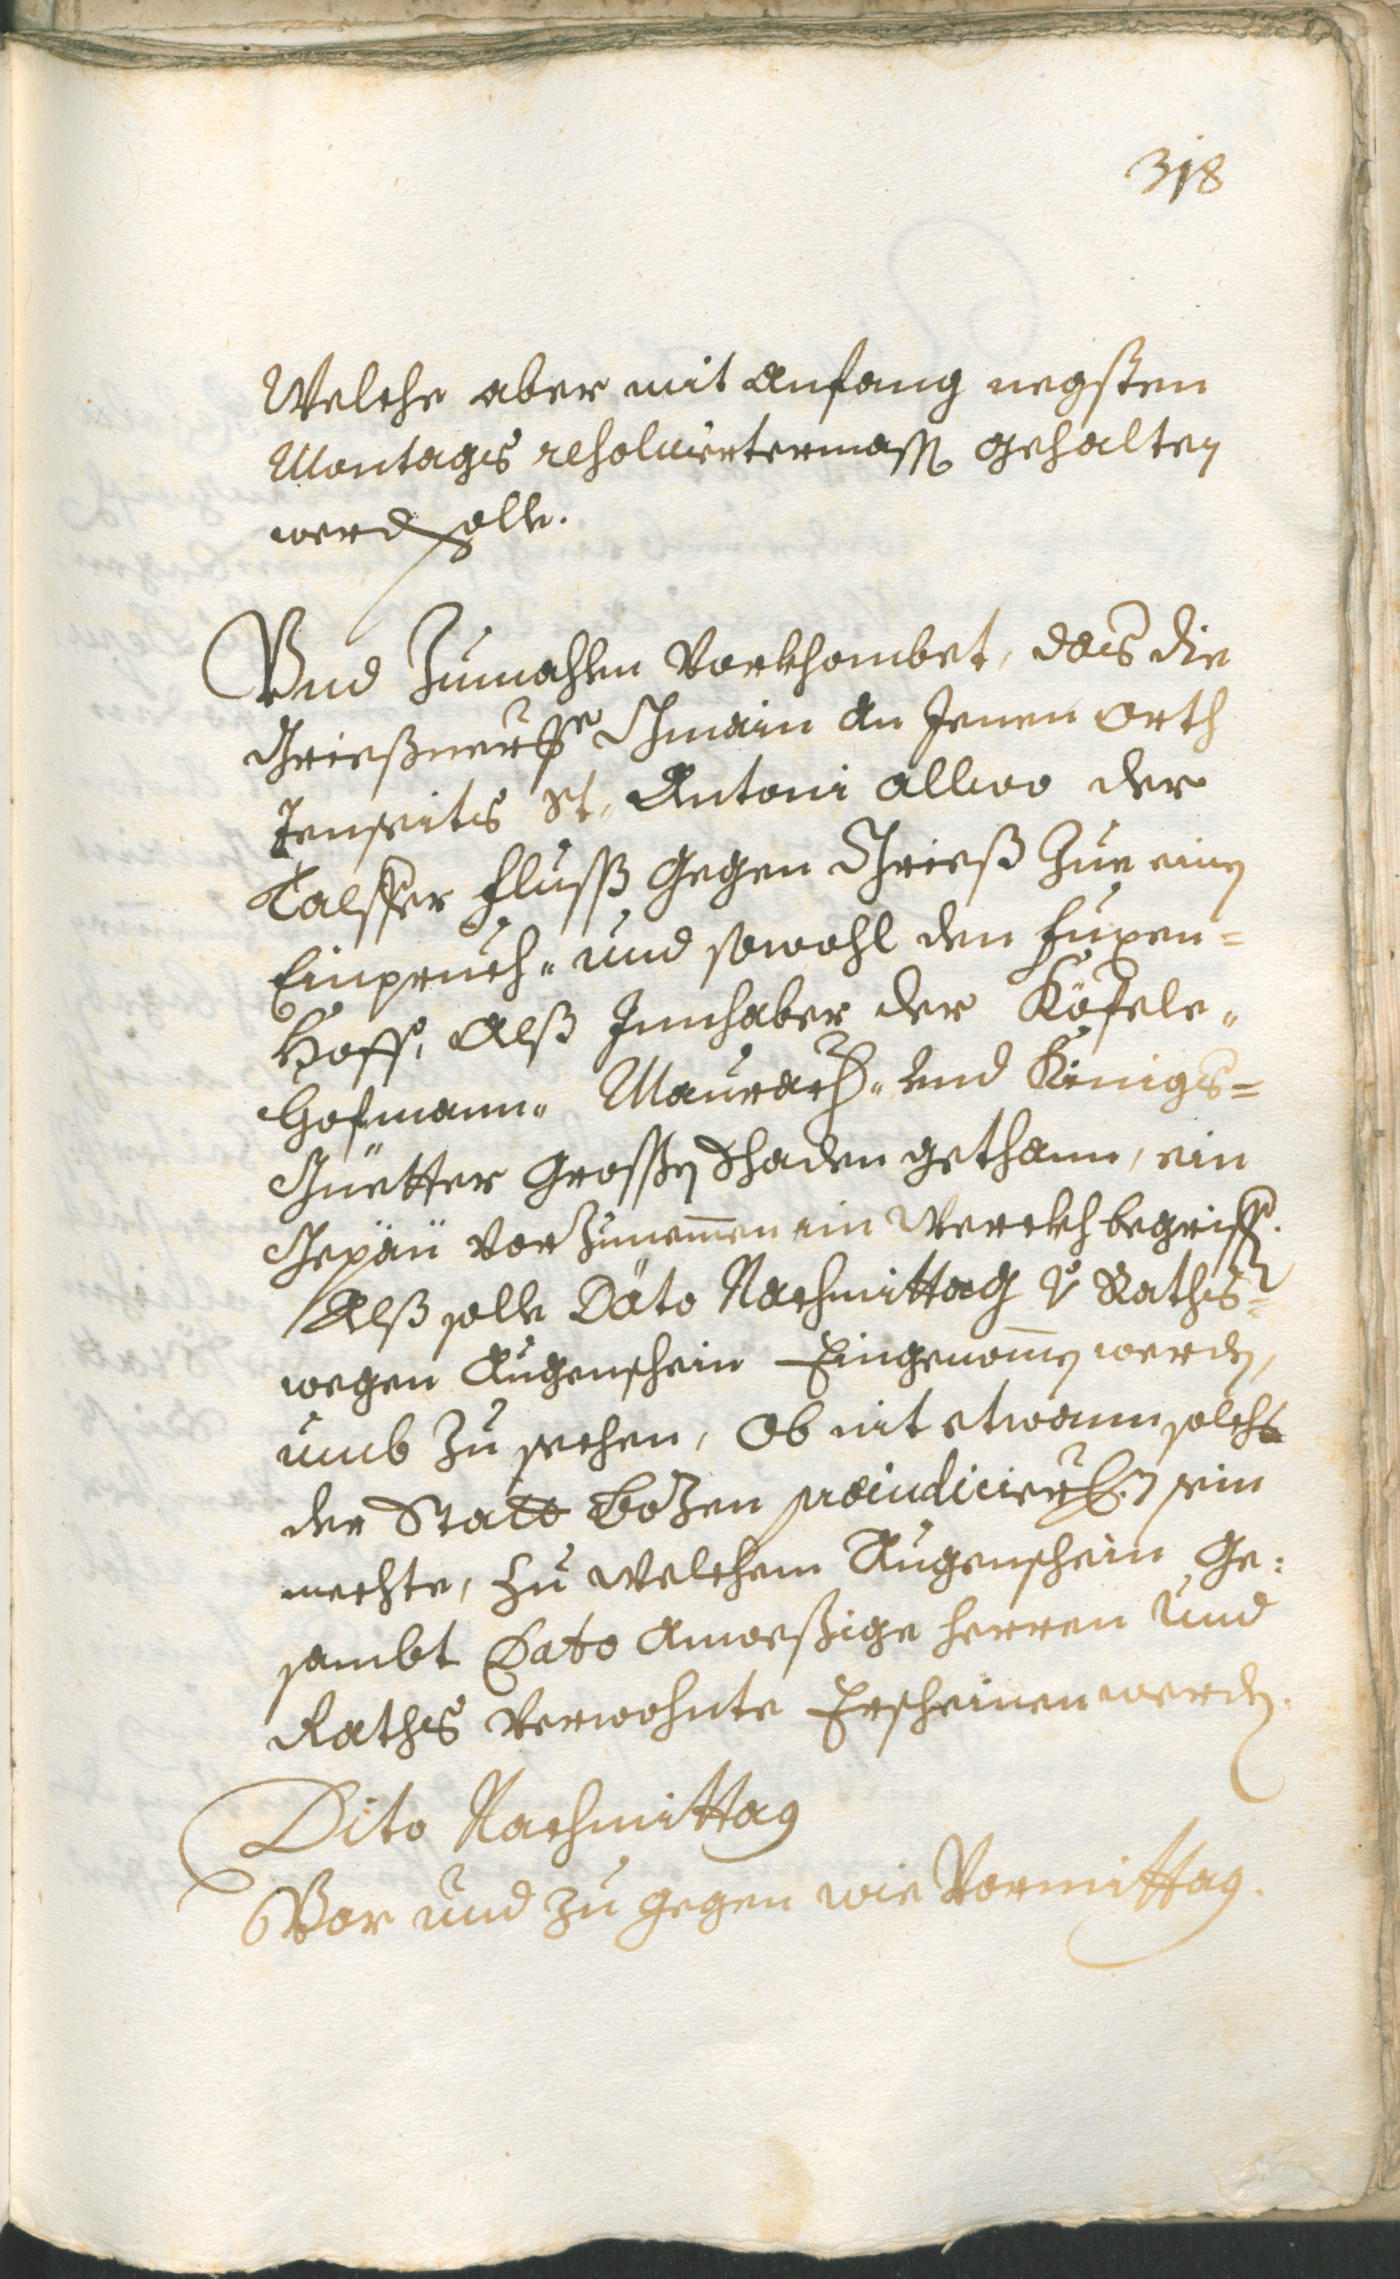 318
Welche aber mit Anfang negsten
Montags resoluiertermass gehalten
werden solle.
Vnd Zumahlen Vorkhombet, das die
Griesßnerische Gmain an Jenen Orth
Jenseits St. Antoni allwo der
Talffer fluss gegen Grieß Zue einen
Einpruch- und sowohl den
Hoff, Alß Innhaber der Köfele-
Hofmann- Maurach- und Königs=
Güetter Grossen Schaden gethann, ein
Gepäu vorZunemen im Werckh begriffen.
Alß solle Dato Nachmittag v Raths=
wegen Augenschein Eingenomen werden,
umb Zu sechen, Ob nit etwann solches
der Statt Bozen præiudicierlich sein
mechte, Zu welchem Augenschein Ge:
sambt Dato Anweßige herren Und
Raths Verwohnte Erscheinen werden.
Dito Nachmittag
Vor und Zu gegen wie Vormittag.